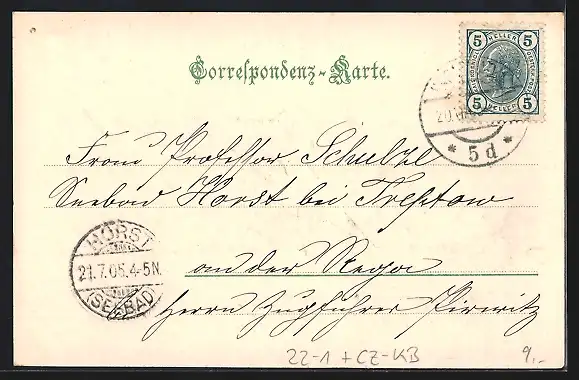 Correspondenz-Karte.
5 HELLER 5
5 HELLER 5
20.
* 5d *
Frau Professor Schulze
Seebad Horst bei Treptow
an der Rega
Herrn Zugführer
HORST
21.7.05.4-5N.
(SEEBAD)
22-1 + CZ-KB
9,-